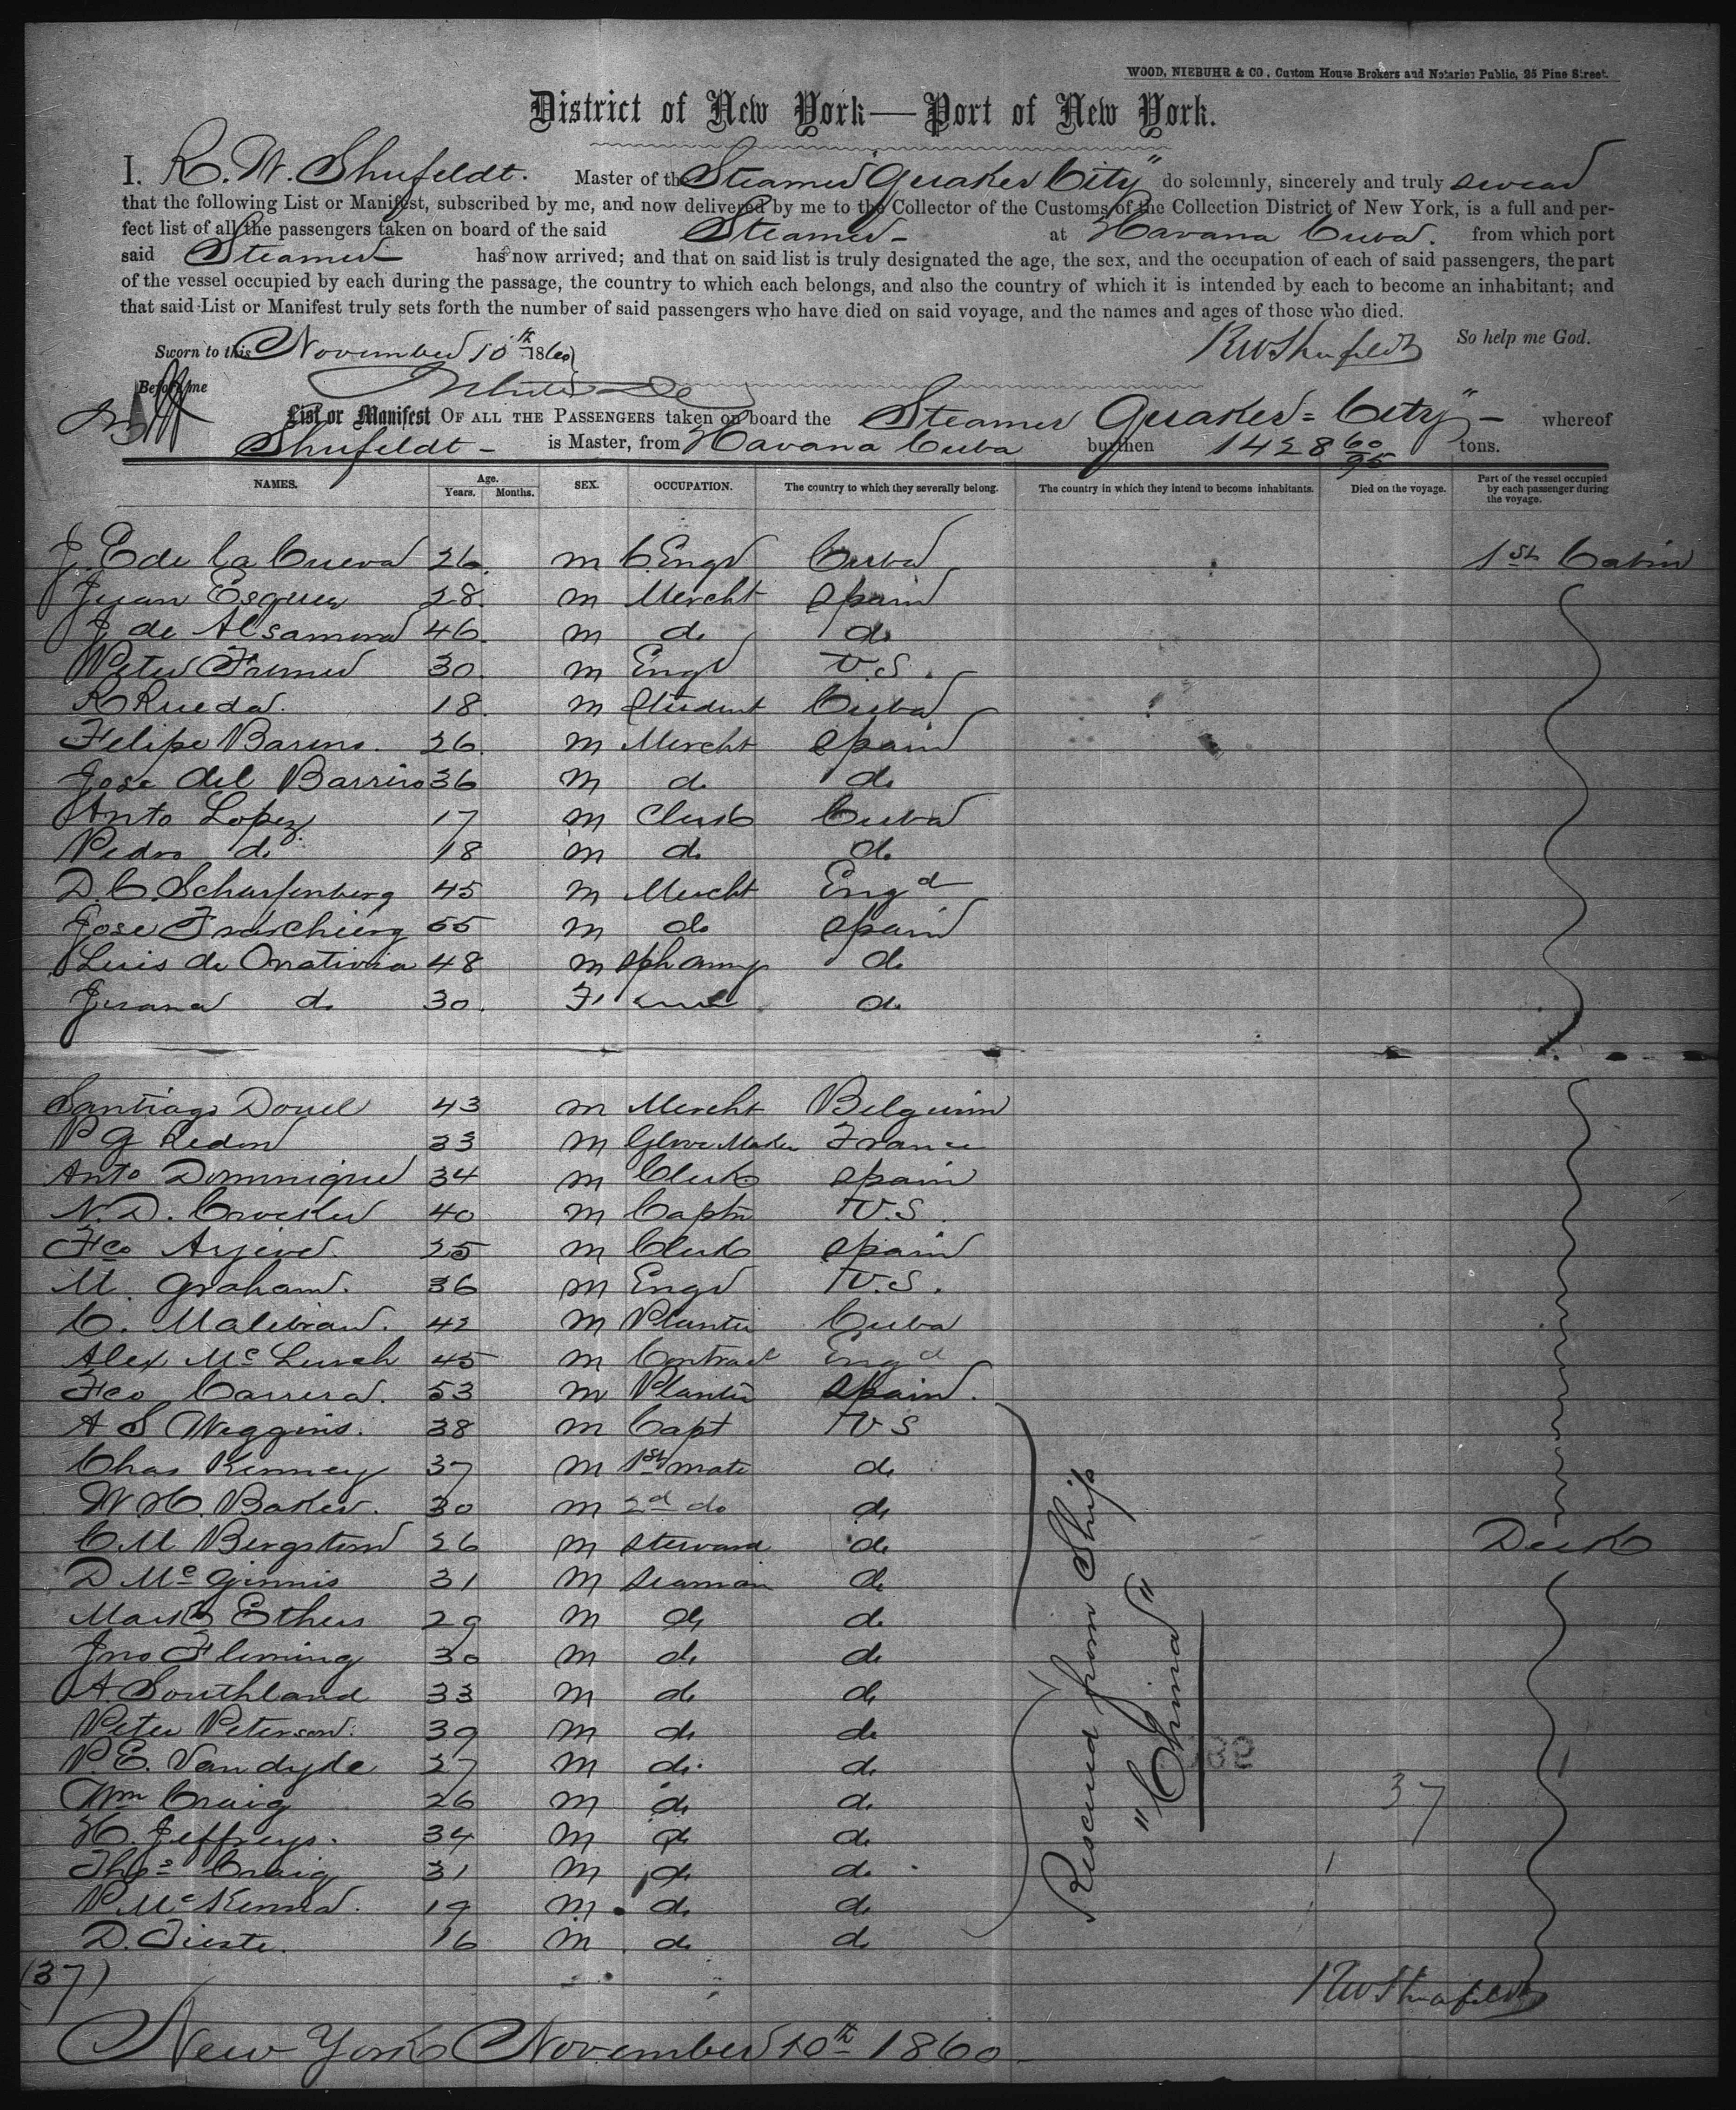 WOOD, NIEBUHR & CO, Custom House Brokers and Notaries Public, 25 Pine Street.
District of New York—Port of New York.
I. R. W. Shufeldt. Master of the Steamer "Quaker City" do solemnly, sincerely and truly swear
that the following List or Manifest, subscribed by me, and now delivered by me to the Collector of the Customs of the Collection District of New York, is a full and per-
fect list of all the passengers taken on board of the said Steamer - at Havana Cuba. from which port
said Steamer - has now arrived; and that on said list is truly designated the age, the sex, and the occupation of each of said passengers, the part
of the vessel occupied by each during the passage, the country to which each belongs, and also the country of which it is intended by each to become an inhabitant; and
that said List or Manifest truly sets forth the number of said passengers who have died on said voyage, and the names and ages of those who died.
So help me God.
RW Shufeldt
Sworn to this November 10th 1860
Before me
List or Manifest OF ALL THE PASSENGERS taken on board the Steamer Quaker=City" - whereof
Shufeldt - is Master, from Havana Cuba burthen 1428 60/95 tons.
NAMES. Age. Years. Months. SEX. OCCUPATION. The country to which they severally belong. The country in which they intend to become inhabitants. Died on the voyage. Part of the vessel occupied by each passenger during the voyage.
J. E de la Cueva 26. m C. Engr Cuba 1st Cabin
Juan 28. m Mercht Spain
J. de Alsamora 46. m do do
Peter 30. m Engr U.S.
R Rueda. 18. m Student Cuba
Felipe 26. m Mercht Spain
Jose del Barrio 36 m do do
Anto Lopez 17 m Clerk Cuba
Pedro do 18 m do do
D. C. Scharfenberg 45 m Mercht Engd
Jose 55 m do Spain
Luis de Onativia 48 m do
Juana do 30. F do
Santiago 43 m Mercht Belguim
P G Redon 33 m Glove Maker France
Anto Dominique 34 m Clerk Spain
N. D. Crocker 40 m Captn U.S.
Fco 25 m Clerk Spain
M. Graham. 36 m Engr U.S.
C. Malibran. 42 m Planter Cuba
Alex Mc 45 m Contract Engd
Fco Carrera. 53 m Planter Spain.
A S Wiggins. 38 m Capt U S
Chas Kenney 37 m 1st mate do
W. H. Baker. 30 m 2d do do
C M Bergstrom 26 m Steward do Deck
D McGinnis 31 m Seaman do
Mark Ethers 29 m do do
Jno Fleming 30 m do do
A. Southland 33 m do do
Peter Peterson. 39 m do do
P. E. Vandyke 27 m do do
Wm Craig 26 m do do
H. Jeffreys. 34 m do do
Thos Craig 31 m do do
P. McKenna. 19 m do do
D. 16 m do do
Rescued from Ship
"China"
37
(37)
RW Shufeldt
New York November 10th 1860 -